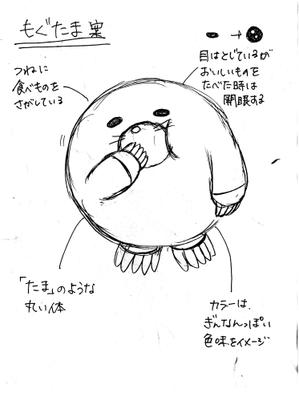 もぐたま 案
目はとじているが
おいしいものを
たべた時は
開眼する
つねに
食べものを
さがしている
「たま」のような
丸い体
カラーは、
ぎんなんっぽい
色味をイメージ